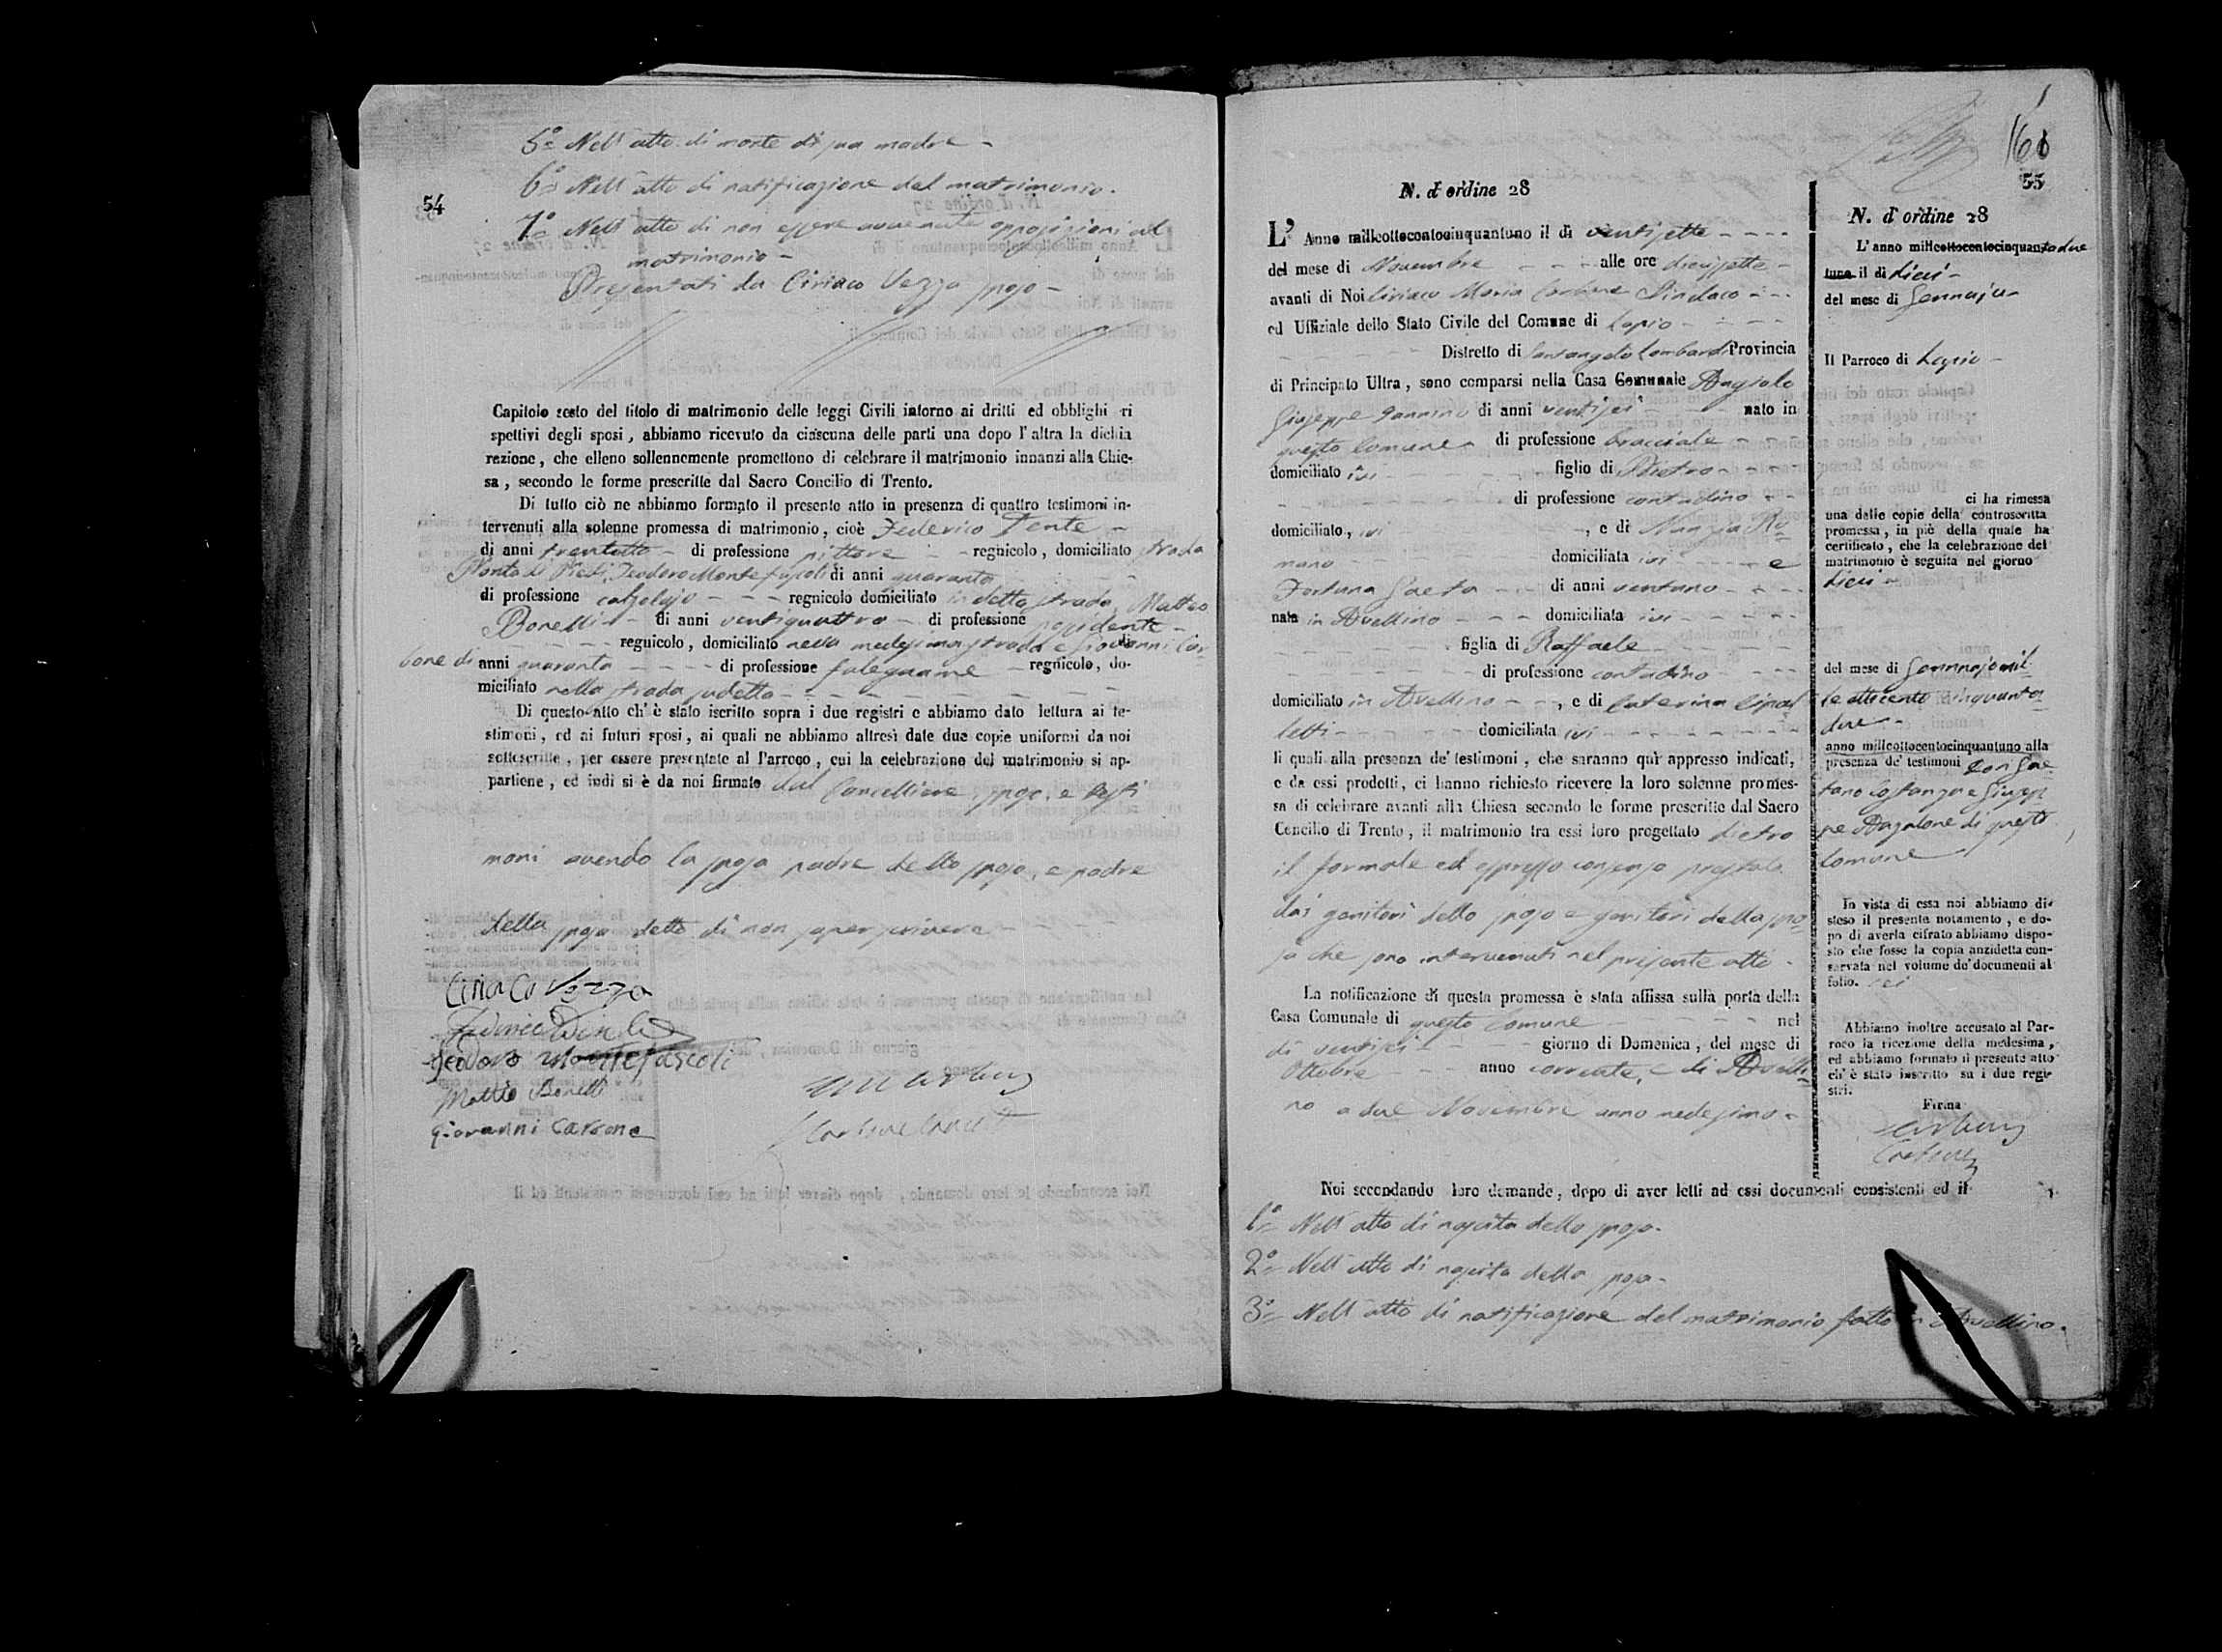 54
5º Nell'atto di morte di sua madre -
6º Nell'atto di notificazione del matrimonio.
7º Nell'atto di non essere avvenute opposizioni al
matrimonio -
Presentati da Ciriaco Vezza sposo -
Capitolo sesto del titolo di matrimonio delle leggi Civili intorno ai dritti ed obblighi ri
spettivi degli sposi, abbiamo ricevuto da ciascuna delle parti una dopo l'altra la dichia
razione, che elleno sollennemente promettono di celebrare il matrimonio innanzi alla Chie-
sa, secondo le forme prescritte dal Sacro Concilio di Trento.
Di tutto ciò ne abbiamo formato il presente atto in presenza di quattro testimoni in-
tervenuti alla solenne promessa di matrimonio, cioè Federico Tente -
di anni trentotto - di professione pittore - - regnicolo, domiciliato strada
Teodoro Montefuscoli di anni quaranta
di professione calzolajo - - - regnicolo domiciliato in detta strada, Matteo
Bonelli - di anni ventiquattro - di professione possidente -
- - - regnicolo, domiciliato nella medesima strada e Giovanni Car
bone di anni quaranta - - - - di professione falegname - regnicolo, do-
miciliato nella strada sudetta - - - - - - - -
Di questo atto ch'è stato iscritto sopra i due registri e abbiamo dato lettura ai te-
stimoni, ed ai futuri sposi, ai quali ne abbiamo altresì date due copie uniformi da noi
sottoscritte, per essere presentate al Parroco, cui la celebrazione del matrimonio si ap-
partiene, ed indi si è da noi firmato dal Cancelliere, sposo, e testi
moni avendo la sposa padre dello sposo, e padre
della sposa detto di non saper scrivere - - - -
Ciriaco Vezza
Teodoro Montefuscoli
Matteo Bonelli
Giovanni Carbone
55
N. d'ordine 28
L'Anno milleottocentocinquantuno il dì ventisette - - - -
del mese di Novembre - - - alle ore diecissette -
avanti di Noi Ciriaco Maria Carbone Sindaco - - -
ed Uffiziale dello Stato Civile del Comune di Lapio - - - -
Distretto di Santangelo Lombardi Provincia
di Principato Ultra, sono comparsi nella Casa Comunale Angiolo
Giuseppe Iannino di anni ventisei - - - nato in
questo Comune - di professione bracciale - -
domiciliato ivi - - - - - figlio di Pietro - - - -
- - - - - - di professione contadino - -
domiciliato, ivi - - - - -, e di Nunzia Ro-
mano - - domiciliata ivi - - - - e
Fortuna Gaeta - - - di anni ventuno - - - -
nata in Avellino - - - domiciliata ivi - - - - -
figlia di Raffaele - - - - -
di professione contadino - - - -
domiciliato in Avellino - - -, e di Caterina Cipol
letti - - - - - domiciliata ivi - - - - - - - -
li quali alla presenza de' testimoni, che saranno quì appresso indicati,
e da essi prodotti, ci hanno richiesto ricevere la loro solenne promes-
sa di celebrare avanti alla Chiesa secondo le forme prescritte dal Sacro
Concilio di Trento, il matrimonio tra essi loro progettato dietro
il formale ed espresso consenso prestato
dai genitori dello sposo e genitori della spo-
sa che sono intervenuti nel presente atto -
La notificazione di questa promessa è stata affissa sulla porta della
Casa Comunale di questo Comune - - - - nel
dì ventisei - - - - giorno di Domenica, del mese di
Ottobre - - - anno corrente, e di Avelli-
no a due Novembre anno medesimo -
Noi secondando loro demande, dopo di aver letti ad essi documenti consistenti ed il
1º Nell'atto di nascita dello sposo.
2º Nell'atto di nascita della sposa -
3º Nell'atto di notificazione del matrimonio fatto in Avellino.
N. d'ordine 28
L'anno milleottocentocinquantadue
tuno il dì dieci -
del mese di Gennajo -
Il Parroco di Lapio -
ci ha rimessa
una delle copie della controscritta
promessa, in piè della quale ha
certificato, che la celebrazione del
matrimonio è seguita nel giorno
dieci -
del mese di Gennajo mil
le ottocento cinquanta
due -
anno milleottocentocinquantuno alla
presenza de' testimoni Don Gae
tano Costanza e Giusep
pe Angalone di questo
Comune
In vista di essa noi abbiamo di-
steso il presente notamento, e do-
po di averla cifrato abbiamo dispo-
sto che fosse la copia anzidetta con-
servata nel volume de' documenti al
folio. sei
Abbiamo inoltre accusato al Par-
roco la ricezione della medesima,
ed abbiamo formato il presente atto
ch'è stato inscritto su i due regi-
stri.
Firma